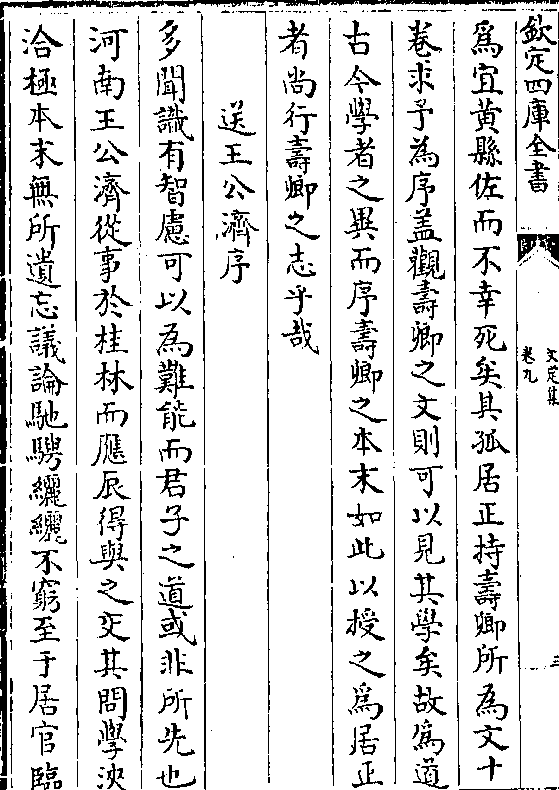 欽定四庫全書
文定集
卷九
三
爲宜黄縣佐而不幸死矣其孤居正持壽卿所為文十
卷求予為序盖觀壽卿之文則可以見其學矣故爲道
古今學者之異而序壽卿之本末如此以授之爲居正
者尚行壽卿之志乎哉
送王公濟序
多聞識有智慮可以為難能而君子之道或非所先也
河南王公濟從事於桂林而應辰得與之交其問學浹
洽極本末無所遺忘議論馳騁纚纚不窮至于居官臨